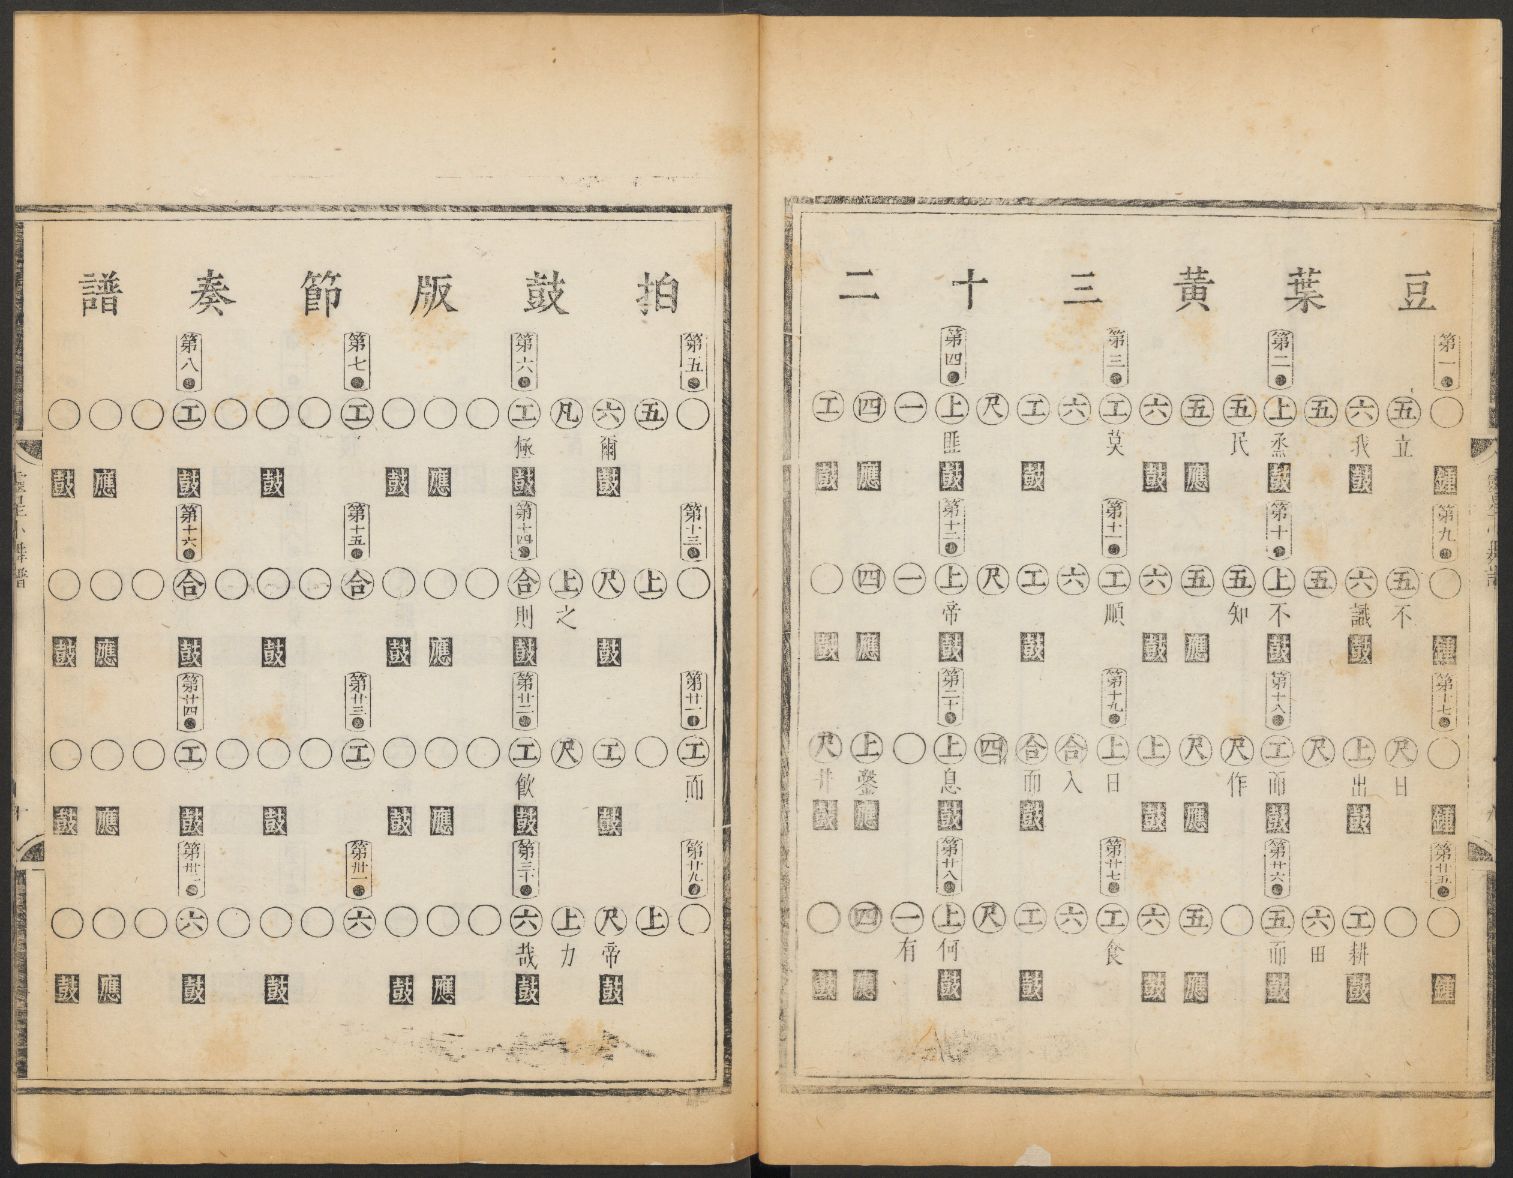 豆葉黃三十二
第一 第二 第三 第四
○五六五上五五五六工六工尺上一四工
立我烝民莫匪
鍾鼓鼓應鼓鼓鼓應鼓
第九 第十 第十一 第十二
○五六五上五五五六工六工尺上一四○
不識不知順帝
鍾鼓鼓應鼓鼓鼓應鼓
第十七 第十八 第十九 第二十
○尺上尺工尺尺上上合合四上○上尺
日出而作日入而息鑿井
鍾鼓鼓應鼓鼓鼓應鼓
第廿五 第廿六 第廿七 第廿八
○○工六五○五六工六工尺上一四○
耕田而食何有
鍾鼓鼓應鼓鼓鼓應鼓
拍鼓版節奏譜
第五 第六 第七 第八
○五六凡工○○○工○○○工○○○
爾極
鼓鼓應鼓鼓鼓應鼓
第十三 第十四 第十五 第十六
○上尺上合○○○合○○○合○○○
之則
鼓鼓應鼓鼓鼓應鼓
第廿一 第廿二 第廿三 第廿四
工○工尺工○○○工○○○工○○○
而飲
鼓鼓應鼓鼓鼓應鼓
第廿九 第三十 第卅一 第卅二
○上尺上六○○○六○○○六○○○
帝力哉
鼓鼓應鼓鼓鼓應鼓
小舞譜